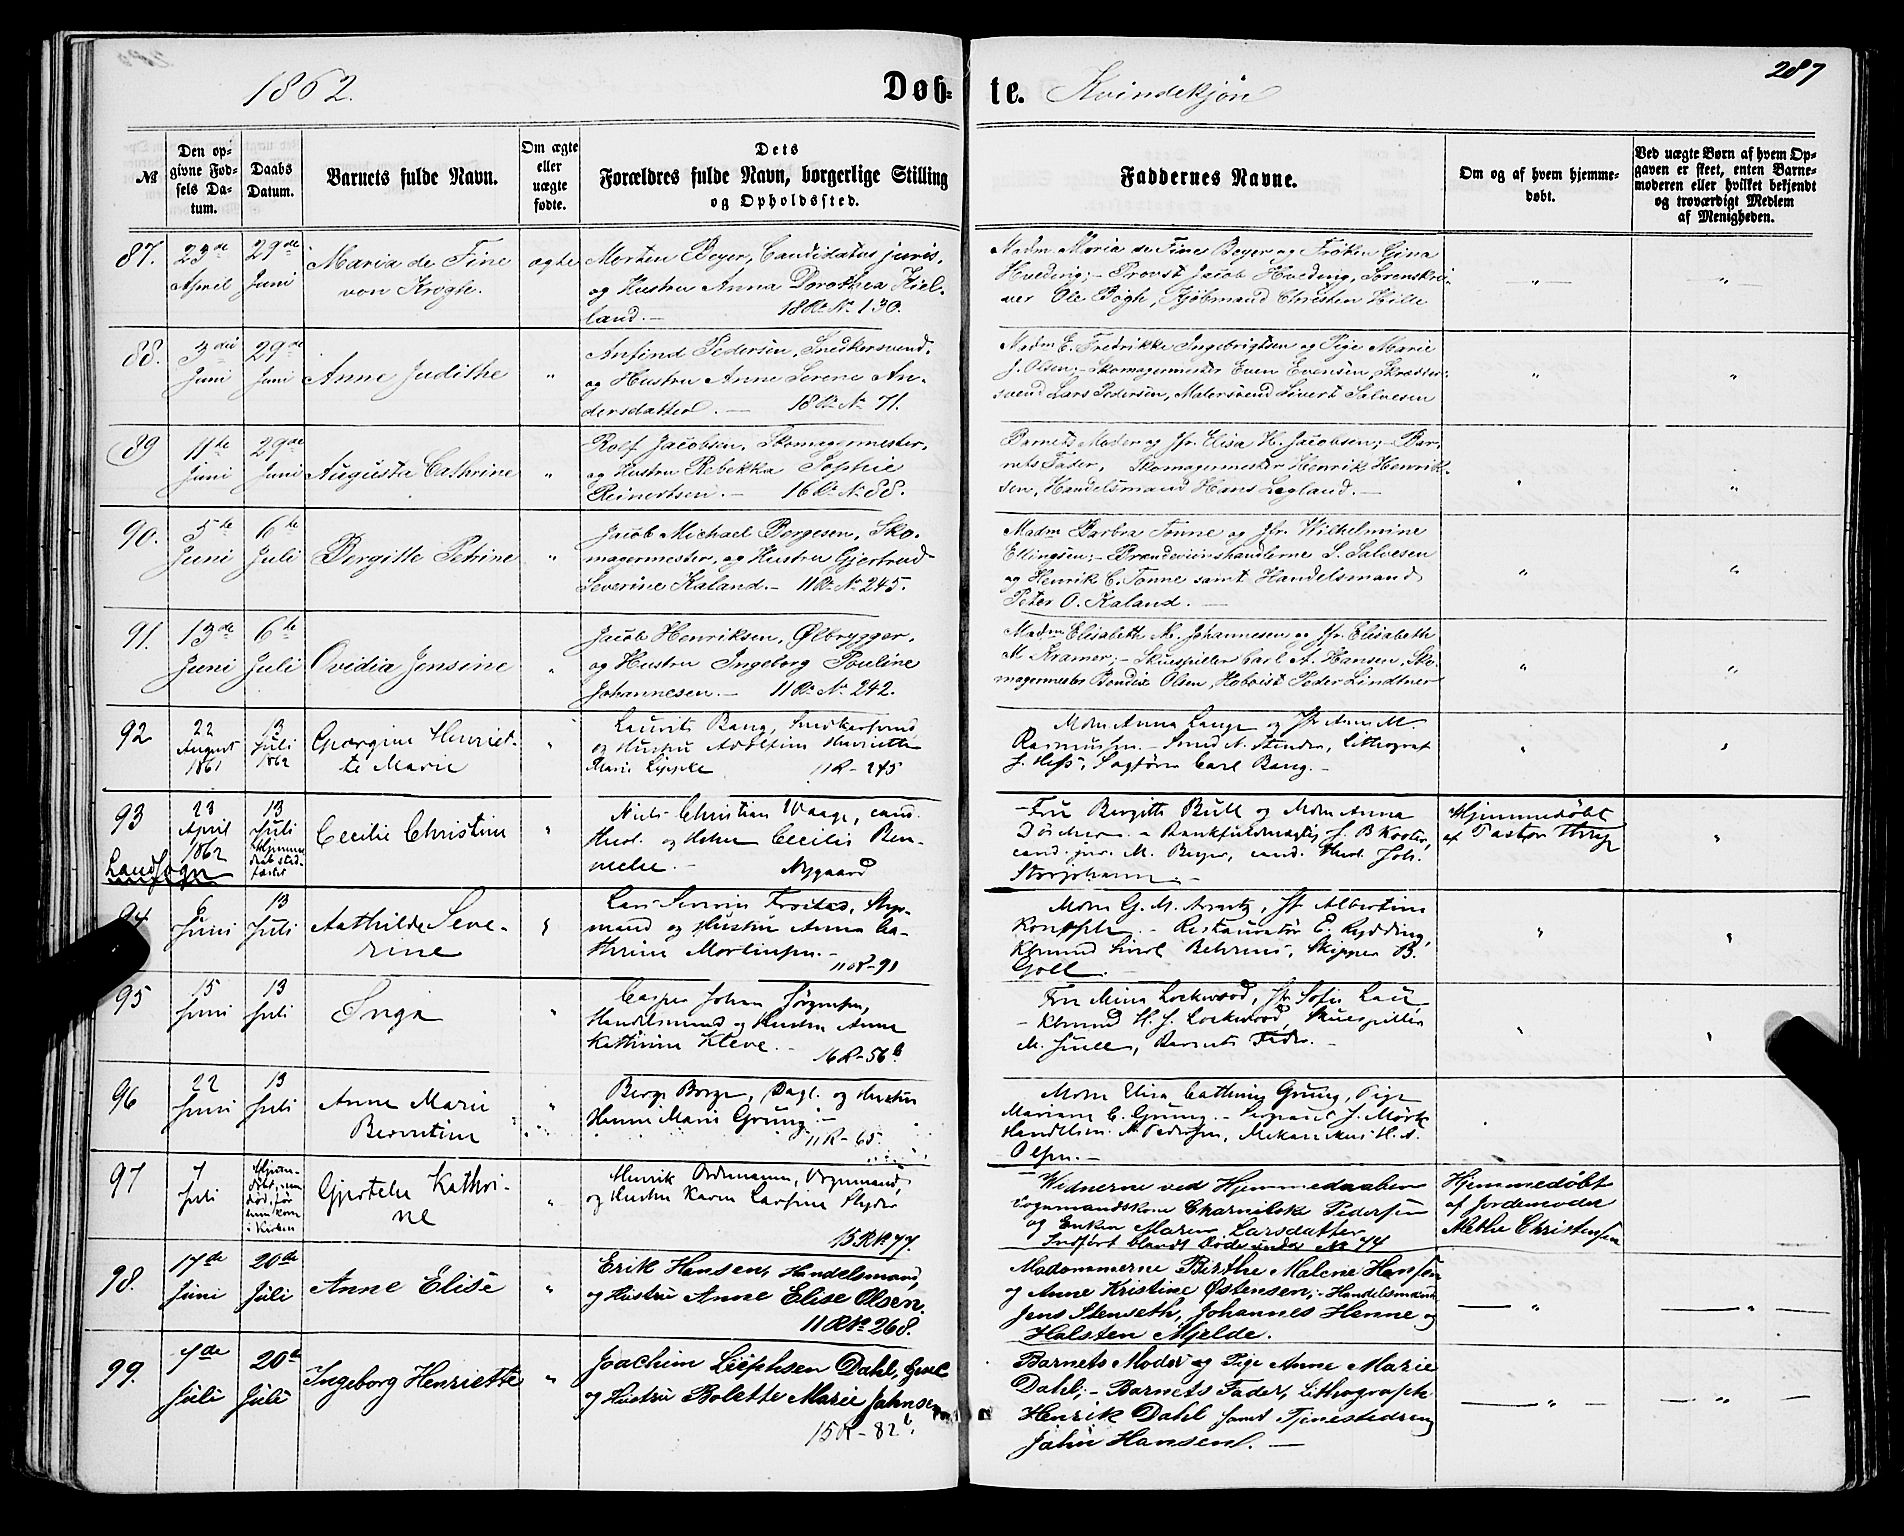 1862.
Døb-
te.
Kvindekjøn
287
№
Den op-
givne Fød-
sels Da-
tum.
Daabs
Datum.
Barnets fulde Navn.
Om ægte
eller
uægte
fødte.
Dets
Forældres fulde Navn, borgerlige Stilling
og Opholdssted.
Faddernes Navne.
Om og af hvem hjemme-
døbt.
Ved uægte Børn af hvem Op-
gaven er skeet, enten Barne-
moderen eller hvilket bekjendt
og troværdigt Medlem
af Menigheden.
87.
23de
April
29de
Juni
Maria de Fine
von Krogh.
ægte
Morten Beyer, Candidatus juris,
og Hustru Anna Dorothea Kiel-
land. — 18 R. No 130.
Madm Maria de Fine Beyer og Frøken Gina
Hveding; - Provst Jacob Hveding, Sorenskri-
ver Ole Bøgh, Kjøbmand Christen
88.
3die
Juni
29de
Juni
Anne Judithe
"
Anfind Pedersen, Snedkersvend,
og Hustru Anne Serene An-
dersdatter. — 18 R. No 71.
Madm E. Fredrikke Ingebrigtsen og Pige Marie
J. Olsen; - Skomagermester Even Evensen, Skrædder-
svend Lars Pedersen, Malersvend Sivert Salvesen
89
11te
Juni
29de
Juni
Augusta Cathrine
"
Rolf Jacobsen, Skomagermester,
og Hustru Ribekka Sophie
Reinertsen. — 16 R. No 88.
Barnets Moder og Jfr. Elisa H. Jacobsen; - Bar-
nets Fader, Skomagermester Henrik Henrik-
sen, Handelsmand Hans Legland. —
90.
5te
Juni
6te
Juli
Bergitte Petrine
"
Jacob Michael Børgesen, Sko-
magermester, og Hustru Gjertrud
Severine Kaland. - 11 R. No 245.
Madm Barbra Tonne og Jfr. Wilhelmine
Ellingsen; - Brændeviinshandlerne S. Salvesen
og Henrik C. Tonne samt Handelsmand
Peter O. Kaland. —
91.
13de
Juni
6te
Juli
Ovidia Jensine
"
Jacob Henriksen, Ølbrygger,
og Hustru Ingeborg Pouline
Johannesen. — 11 R. No 242.
Madm Elisabeth M. Johannesen og Jfr. Elisabeth
M. Kramer; - Skuespiller Carl A. Hansen, Sko-
magermester Bendix Olsen, Hoboist Peder Lindtner
92
22
August
1861
13
Juli
1862
Georgine Henriet-
te Marie
"
Laurits Bang, Snedkersvend
og Hustru Adolfine Henriette
Marie Lippke 11 R - 245
Mdm Anna Lange og Jfr Anna M.
Rasmussen. - Smed N. Stender, Lithograf
J. Hess, Sagfører Carl Bang. -
93
23
April
1862
Landsogn
13
Juli
Cecilie Christine
"
Niels Christian Waage, cand.
theol. og Hustru Cecilie Ren-
Nygaard
Fru Bergitte Bull og Mdm Anna
J. B. Koster,
cand. jur. M. Beyer, cand. theol. Joh.
Storjohann. -
Hjemmedøbt
af Pastor
94
6
Juni
13
Juli
Mathilde Seve-
rine
"
Lars Severin Frostad, Styr-
mand og Hustru Anna Ca-
thrine Mortensen. -
11 R - 91
Mdm G. M. Arentz, Jfr Albertine
Restauratør E. Rydding,
Behrens, Skipper B.
Goll.
95
15
Juni
13
Juli
Inga
"
Casper Johan Jørgensen,
Handelsmand og Hustru Anna
Kathrine Kleve. -
16 R - 56 b
Fru Mina Lockwood, Jfr Sofie Lau,
- Kbmand H. J. Lockwood, Skuespiller
M. Juell, Barnets Fader. -
96
22
Juni
13
Juli
Anne Marie
Berentine
"
og Hustru
Hanne Marie Grung. -
11 R - 65
Mdm Elisa Cathrine Grung, Pige
Mariane C. Grung. - J. Mørk
Handelsm. M. Pedersen, Mekanikus H. A.
Olsen. -
97
7
Juli
Hjem-
døbt,
død, før
kom
i Kirken
Gjertele Kathri-
ne
"
Henrik Ordemann, Vognmand,
og Hustru Karen Larsine
15 R No 77.
Vidnerne ved Hjemmedaaben
Vognmandskone Pedersen
og Enken Maren Larsdatter
Indført blandt Døde under No 74
Hjemmedøbt
af Jordemoder
Methe Christensen
98.
17de
Juni
20de
Juli
Anne Elise
"
Erik Hansen, Handelsmand,
og Hustru Anne Elise Olsen.
11 R No 268.
Madammerne Birthe Malene Hansen
og Anne Kristine Østensen; - Handelsmænd
Jens Stenseth, Johannes Henne og
Halsten Mjelde.
99.
7de
Juli
20de
Juli
Ingeborg Henriette
"
Joachim Dahl,
og Hustru Bolette Marie Jahnsen
15 R - 82 b.
Barnets Moder og Pige Anne Marie
Dahl; - Barnets Fader, Lithograph
Henrik Dahl samt Tjenestedreng
Jahn Hansen. —